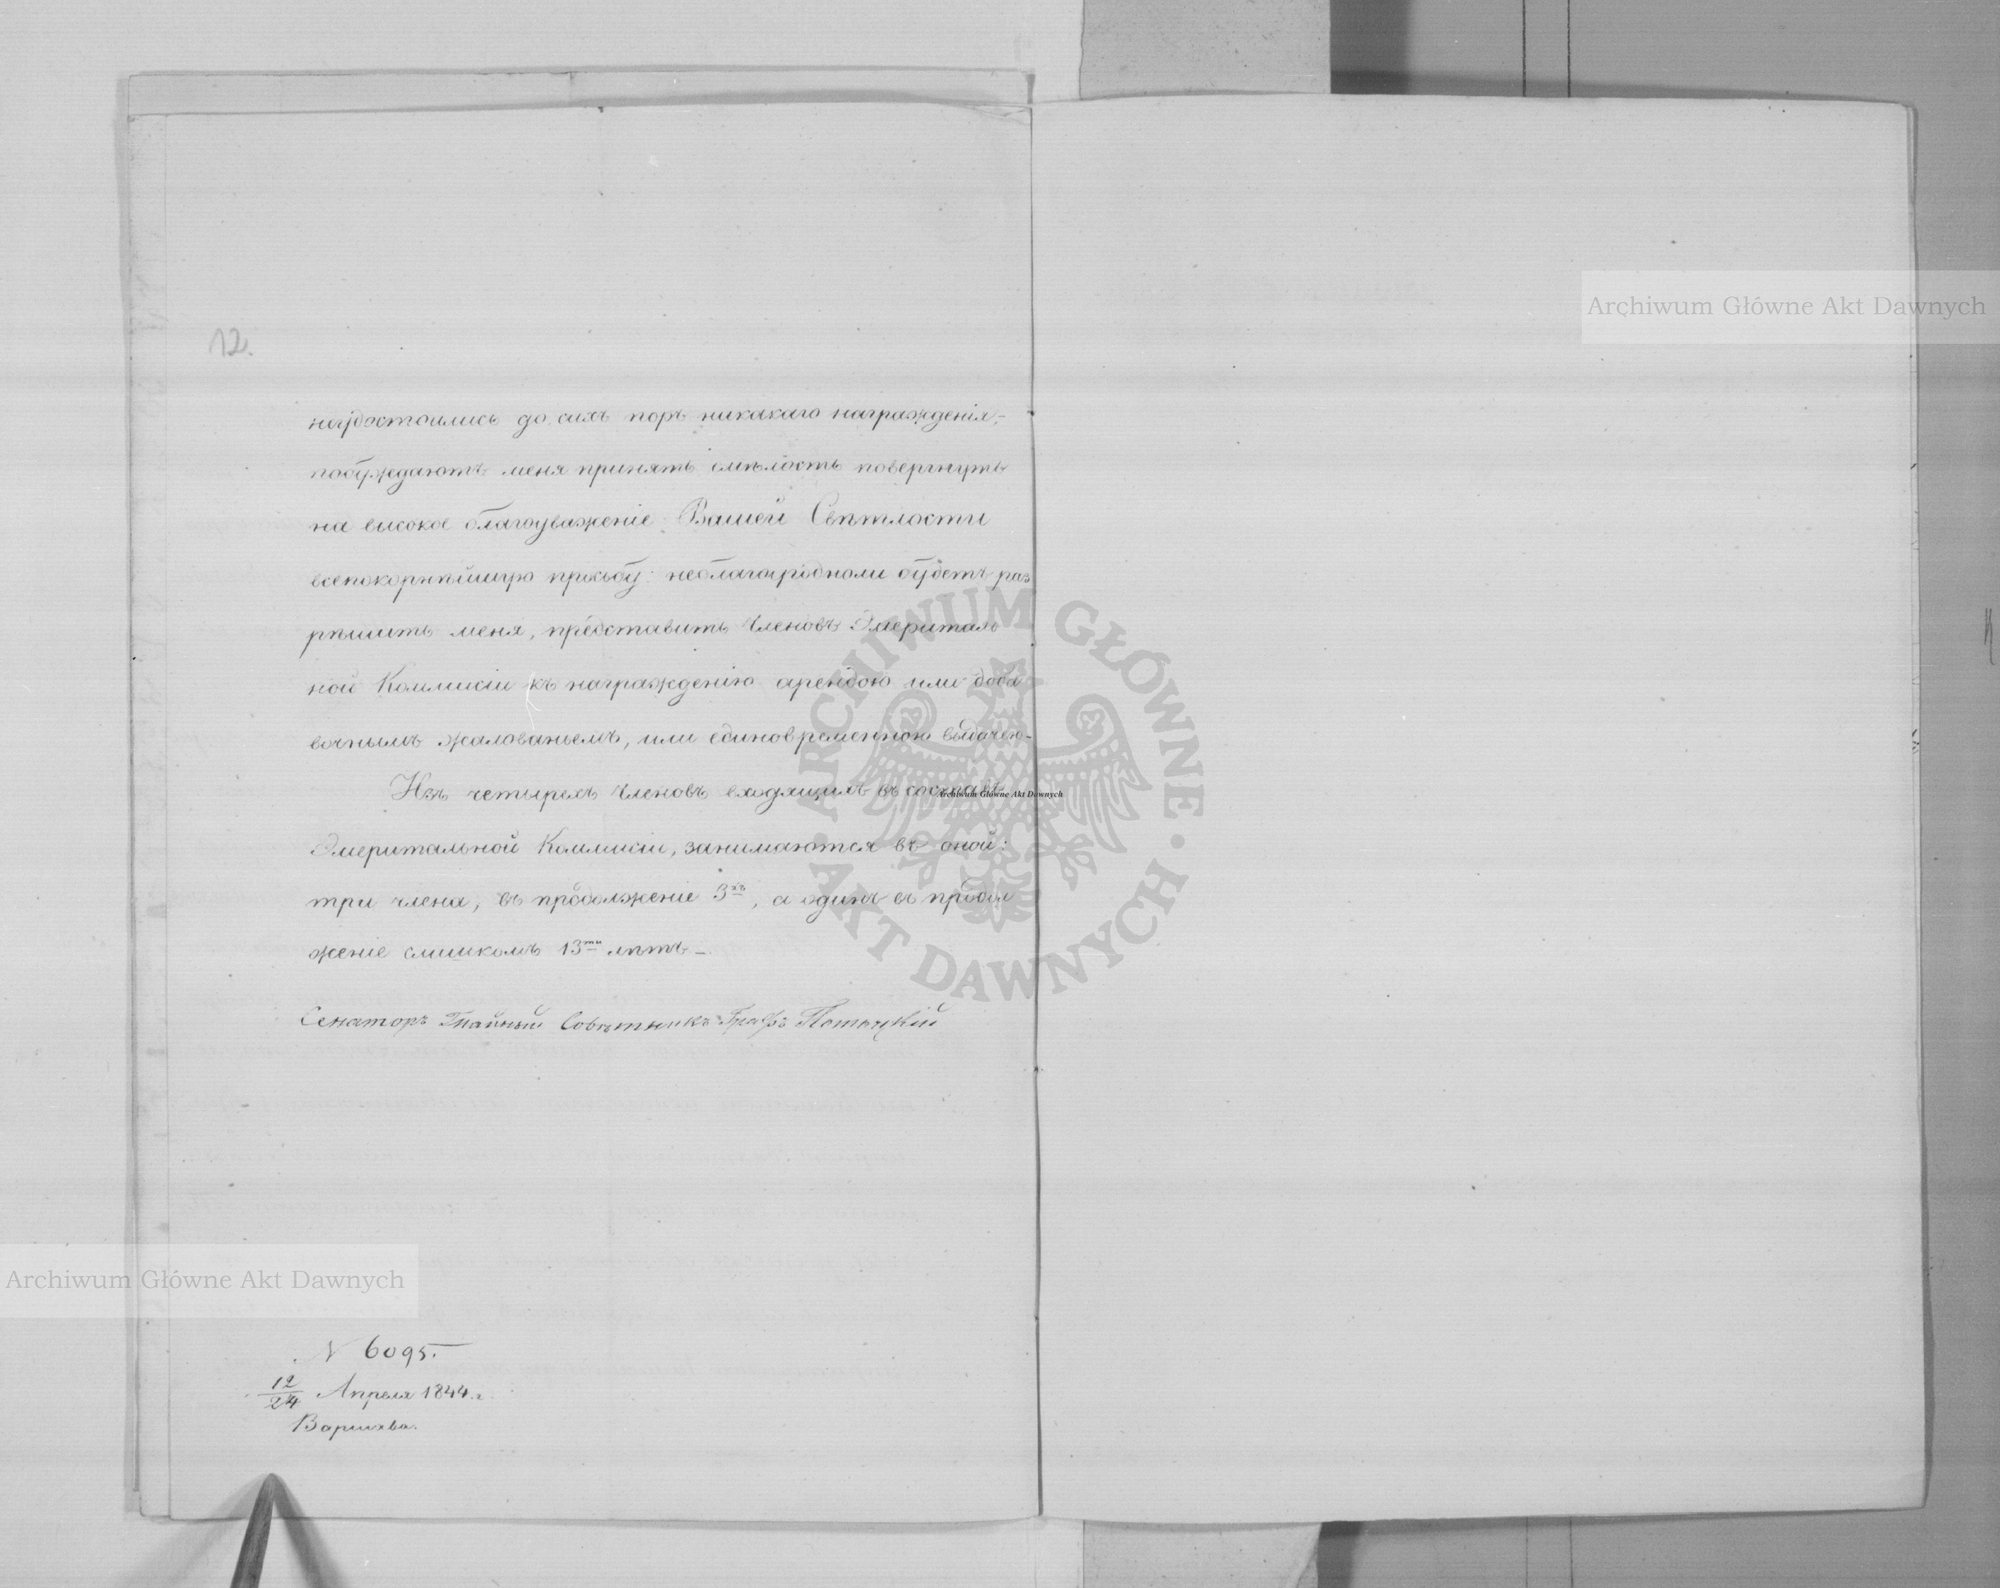 12.
неудостоились до сихъ поръ никакаго награжденія,–
побуждаютъ меня принять смѣлость повергнуть
на высокое благоуваженіе Вашей Свѣтлости
всепокорнѣйшую просьбу: будетъ раз
рѣшить меня, представить Членовъ Эмериталь
ной Коммисіи къ награжденію арендою или доба
вочнымъ жалованьемъ, или единовременною выдачею–
Изъ четырехъ Членовъ входящихъ въ составъ
Эмеритальной Коммисіи, занимаются въ оной:
три члена, въ продолженіе 3хъ, а одинъ въ продол
женіе слишкомъ 13ти лѣтъ–
Сенаторъ Тайный Совѣтникъ Графъ Потоцкій
N 6095.
12/24 Апреля 1844 г.
Варшава.
Archiwum Główne Akt Dawnych
Archiwum Główne Akt Dawnych
Archiwum Główne Akt Dawnych
ARCHIWUM GŁÓWNE AKT DAWNYCH